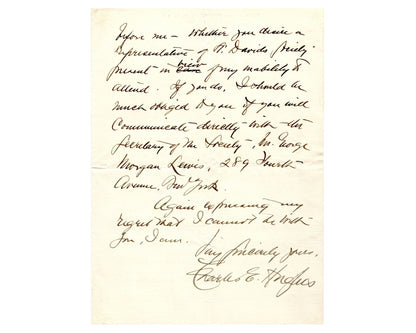 inform me – whether you desire a
representative of St. Davids Society
present in view of my inability to
attend. If you do, I should be
much obliged to you if you will
communicate directly with the
Secretary of the Society, Mr. George
Morgan Lewis, 289 Fourth
Avenue, New York.
Again expressing my
regret that I cannot be with
you, I am.
Very sincerely yours,
Charles E. Hughes